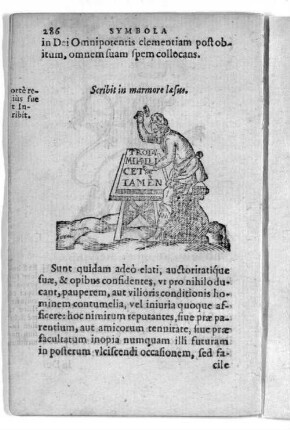 286 SYMBOLA
in Dei Omnipotentis clementiam post ob-
itum, omnem suam spem collocans.
Scribit in marmore læsus.
ortè re-
ius fue
t In-
ribit.
TROIÆ
MIHI LI
CET
TAMEN
Sunt quidam adeò elati, auctoritatisque
suæ, & opibus confidentes, vt pro nihilo du-
cant, pauperem, aut vilioris conditionis ho-
minem contumelia, vel iniuria quoque af-
ficere: hoc nimirum reputantes, siue præ pa-
rentium, aut amicorum tenuitate, siue præ
facultatum inopia numquam illi futuram
in posterum vlciscendi occasionem, sed fa-
cile